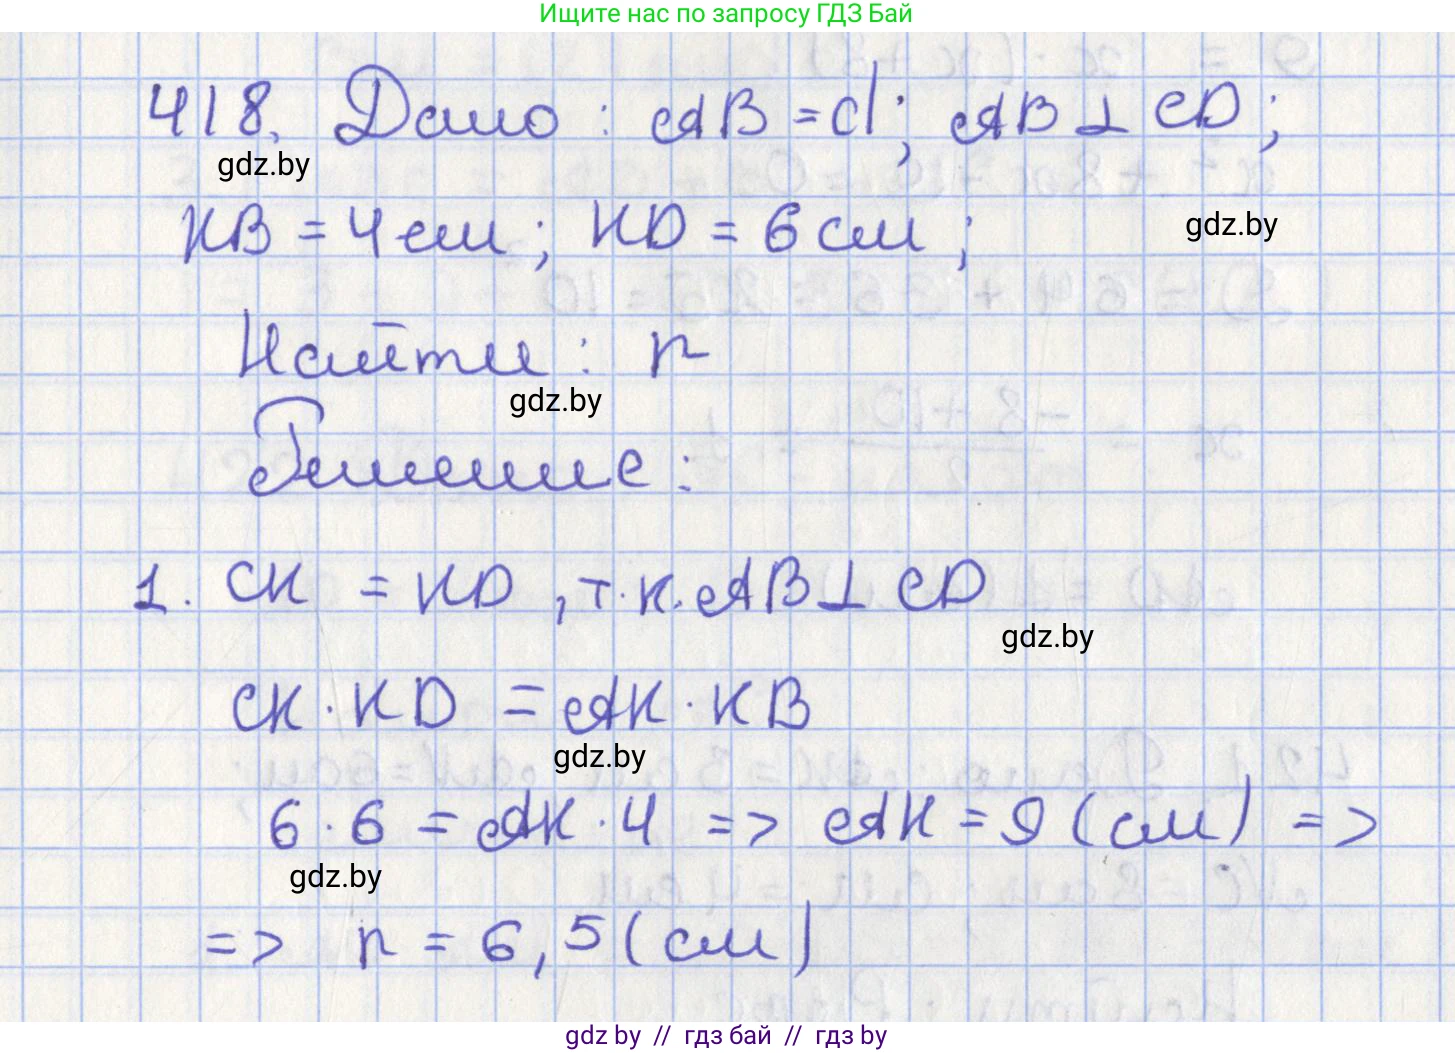 Ищите нас по запросу ГДЗ Бай
418. Дано: AB = d; AB ⊥ CD;
gdz.by
KB = 4 см; KD = 6 см;
gdz.by
Найти: r
gdz.by
Решение:
1. CK = KD, т.к. AB ⊥ CD
gdz.by
CK · KD = AK · KB
gdz.by
6 · 6 = AK · 4 => AK = 9 (см) =>
gdz.by
=> r = 6,5 (см)
gdz by // гдз бай // гдз by